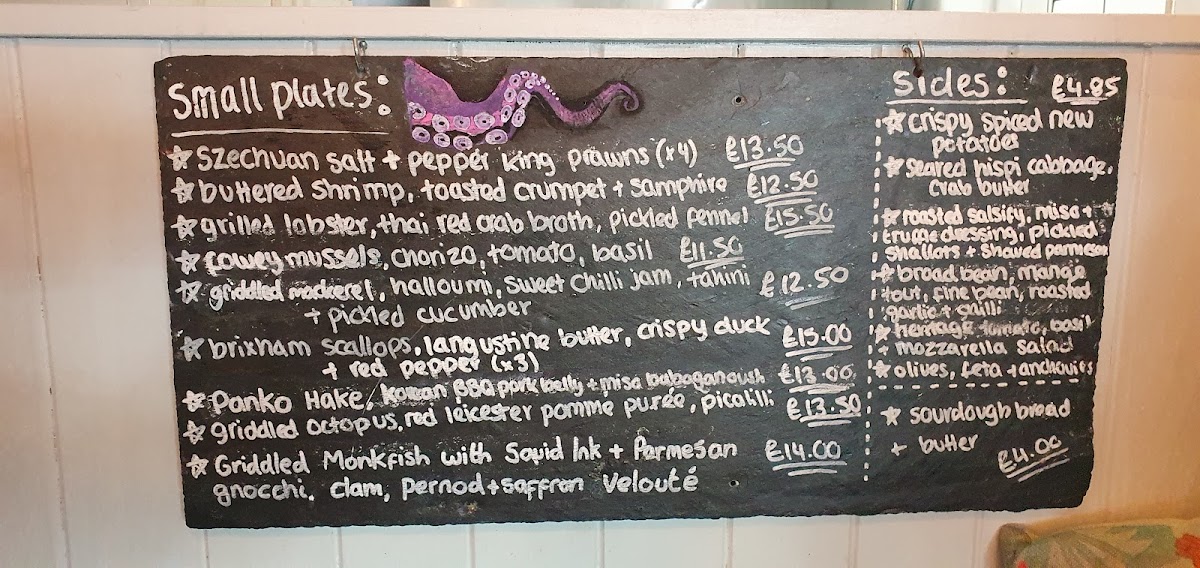 Small plates:
☆ Szechuan salt + pepper king prawns (x4) £13.50
☆ buttered shrimp, toasted crumpet + samphire £12.50
☆ grilled lobster, thai red crab broth, pickled fennel £15.50
☆ fowey mussels, chorizo, tomato, basil £11.50
☆ griddled mackerel, halloumi, sweet chilli jam, tahini £12.50
+ pickled cucumber
☆ brixham scallops, langustine butter, crispy duck £15.00
+ red pepper (x3)
☆ Panko Hake, Korean BBQ pork belly + miso babaganoush £13.00
☆ griddled octopus, red leicester pomme purée, picalilli £13.50
☆ Griddled Monkfish with Squid Ink + Parmesan £14.00
gnocchi, clam, pernod + saffron velouté
Sides: £4.85
☆ crispy spiced new
potatoes
☆ seared hispi cabbage,
crab butter
☆ roasted salsify, miso +
truffle dressing, pickled
shallots + shaved parmesan
☆ broad bean, mange
tout, fine bean, roasted
garlic + chilli
☆ heritage tomato, basil
+ mozzarella salad
☆ olives, feta + anchovies
☆ sourdough bread
+ butter
£4.00